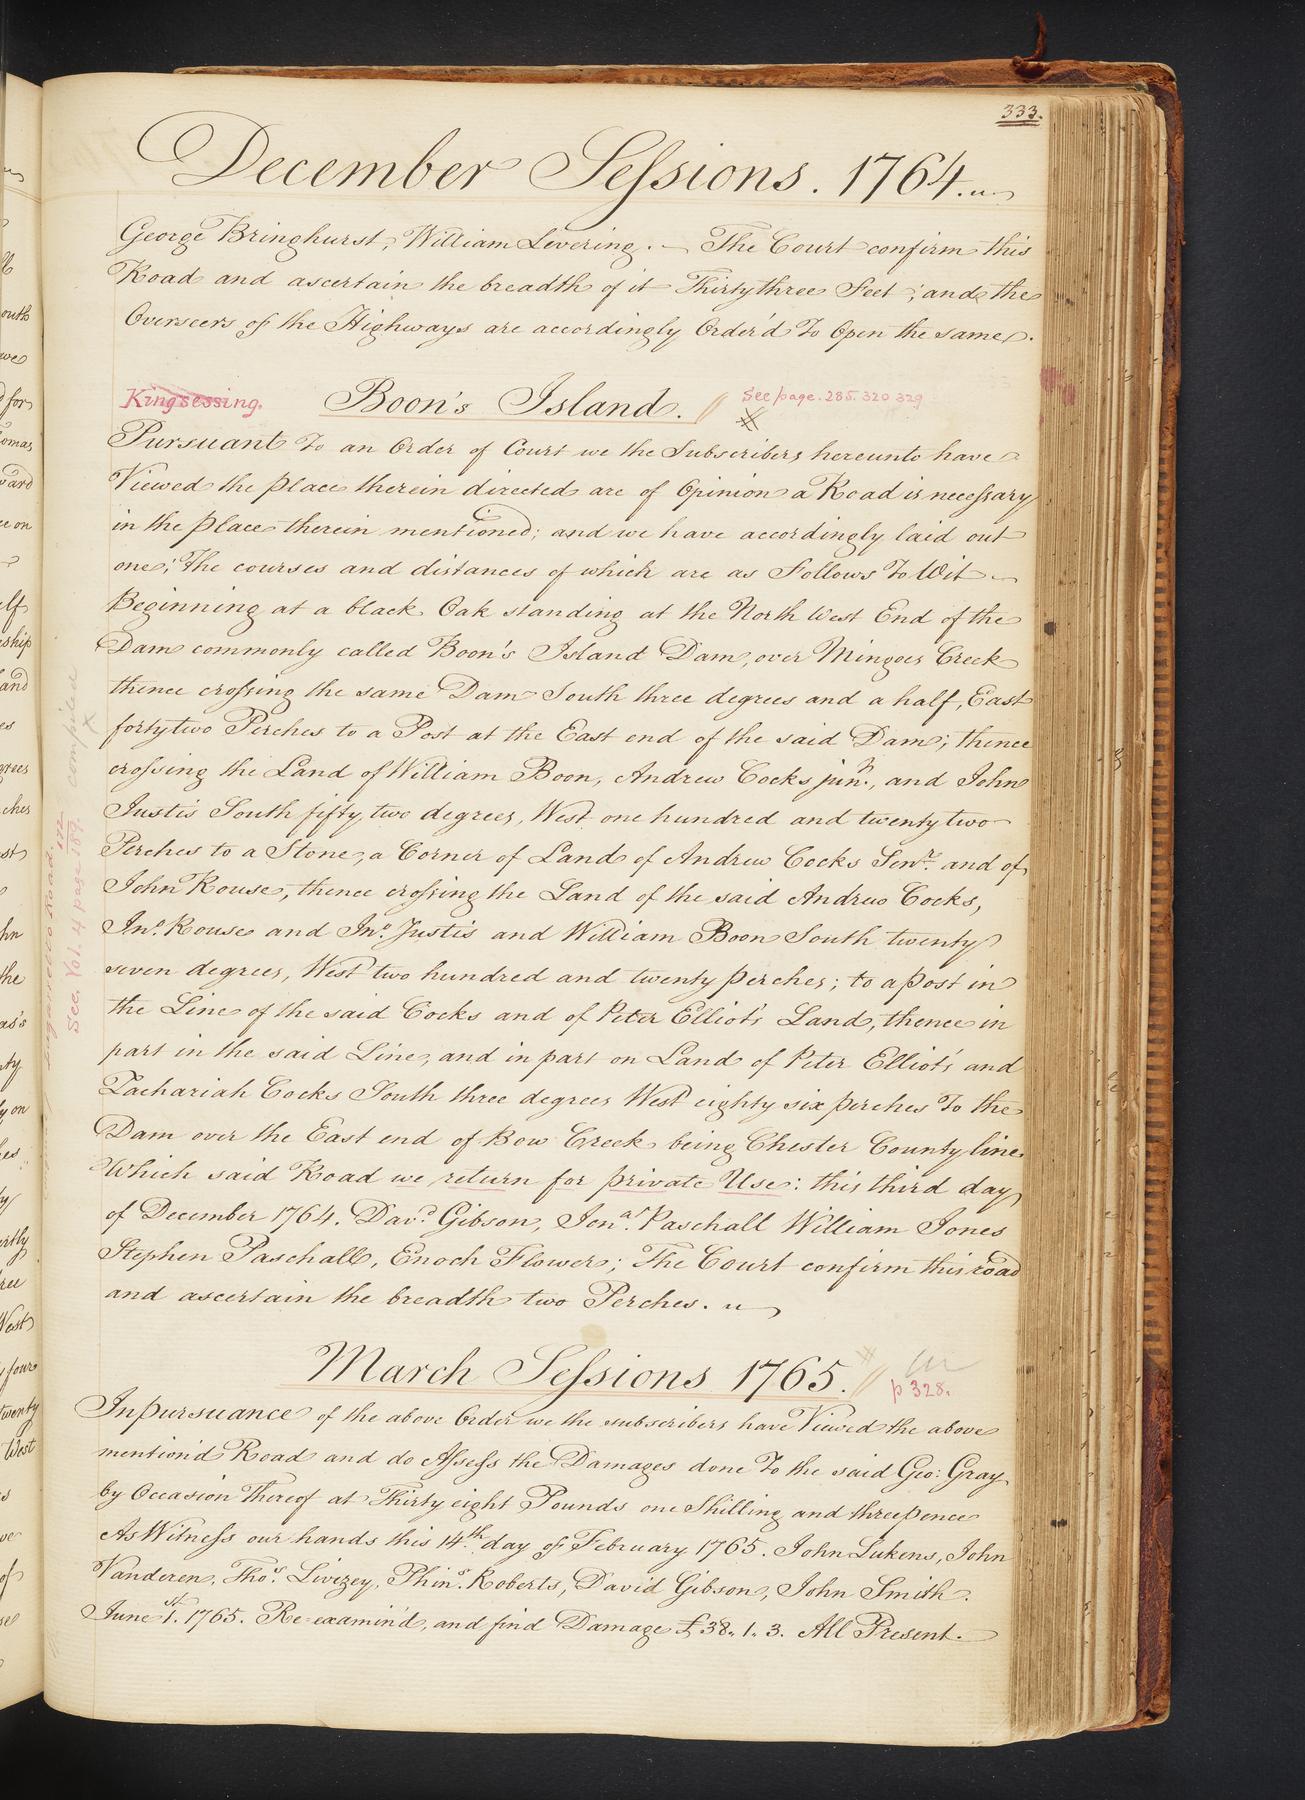 333.
December Sessions. 1764.
George Bringhurst, William Levering. — The Court confirm this
Road and ascertain the breadth of it Thirty three Feet; and the
Overseers of the Highways are accordingly Order'd To Open the same.
Kingsessing. Boon's Island. See page. 285. 320 329
Pursuant To an Order of Court we the Subscribers hereunto have
Viewed the place therein directed are of Opinion a Road is necessary
in the place therein mentioned; and we have accordingly laid out
one; The courses and distances of which are as Follows To Wit
Beginning at a black Oak standing at the North West End of the
Dam commonly called Boon's Island Dam, over Mingoes Creek
thence crossing the same Dam South three degrees and a half, East
forty two Perches to a Post at the East end of the said Dam; thence
crossing the Land of William Boon, Andrew Cocks junr., and John
Justis South fifty two degrees, West one hundred and twenty two
Perches to a Stone, a Corner of Land of Andrew Cocks Senr. and of
John Rouse, thence crossing the Land of the said Andrew Cocks,
Jno. Rouse and Jno. Justis and William Boon South twenty
seven degrees, West two hundred and twenty perches; to a post in
the Line of the said Cocks and of Peter Elliot's Land, thence in
part in the said Line, and in part on Land of Peter Elliot's and
Zachariah Cocks South three degrees West eighty six perches To the
Dam over the East end of Bow Creek being Chester County line
Which said Road we return for private Use: this third day
of December 1764. Davd. Gibson, Jonan. Paschall William Jones
Stephen Paschall, Enoch Flower; The Court confirm this road
and ascertain the breadth two Perches.
March Sessions 1765.
p 328.
In pursuance of the above Order we the subscribers have Viewed the above
mention'd Road and do Assess the Damages done To the said Geo: Gray
by Occasion Thereof at Thirty eight Pounds one Shilling and threepence
As Witness our hands this 14th. day of February 1765. John Lukens, John
Vanderen, Thos. Livizey, Phins. Roberts, David Gibson, John Smith.
June 1st. 1765. Re-examin'd, and find Damage £38.. 1.. 3. All Present.
See. Vol. 4 page 189.
compiled